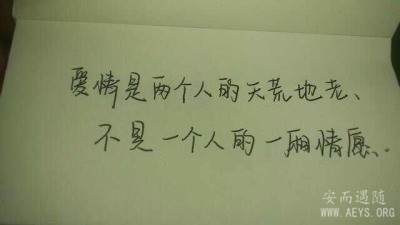 爱情是两个人的天荒地老、
不是一个人的一厢情愿..
安而遇随
WWW.AEYS.ORG